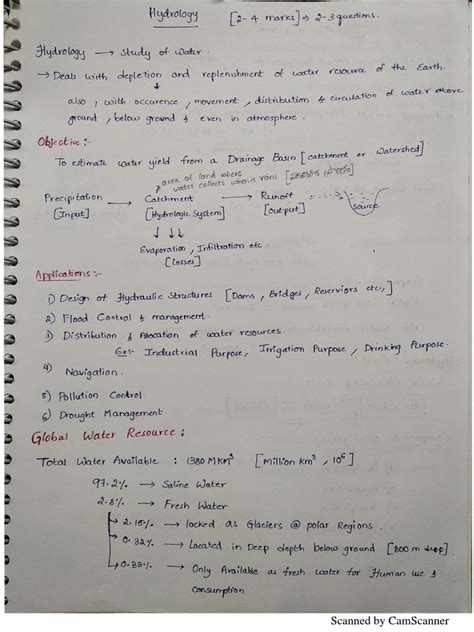 Hydrology [2-4 marks] ⇒ 2-3 questions.
Hydrology → study of water.
→ Deals with depletion and replenishment of water resource of the Earth.
also, with occurence, movement, distribution & circulation of water above
ground, below ground & even in atmosphere.
Objective :-
To estimate water yield from a Drainage Basin [catchment or Watershed]
area of land where
water collects when it rains
Precipitation → Catchment → Runoff
[Input] [Hydrologic System] [output] Source
Evaporation, Infiltration etc.
[losses]
Applications :-
1) Design of Hydraulic Structures [Dams, Bridges, Reserviors etc.,]
2) Flood Control & management.
3) Distribution & Allocation of water resources.
Ex:- Industrial Purpose, Irrigation Purpose, Drinking Purpose.
4) Navigation.
5) Pollution Control.
6) Drought Management.
Global Water Resource :
Total Water Available : 1380 MKm³ [Million Km³, 10⁶]
97.2% → Saline Water
2.8% → Fresh Water
→ 2.15% → locked as Glaciers @ polar Regions.
→ 0.32% → Located in Deep depth below ground [800 m deep]
→ 0.33% → Only Available as fresh water for Human use &
Consumption
Scanned by CamScanner